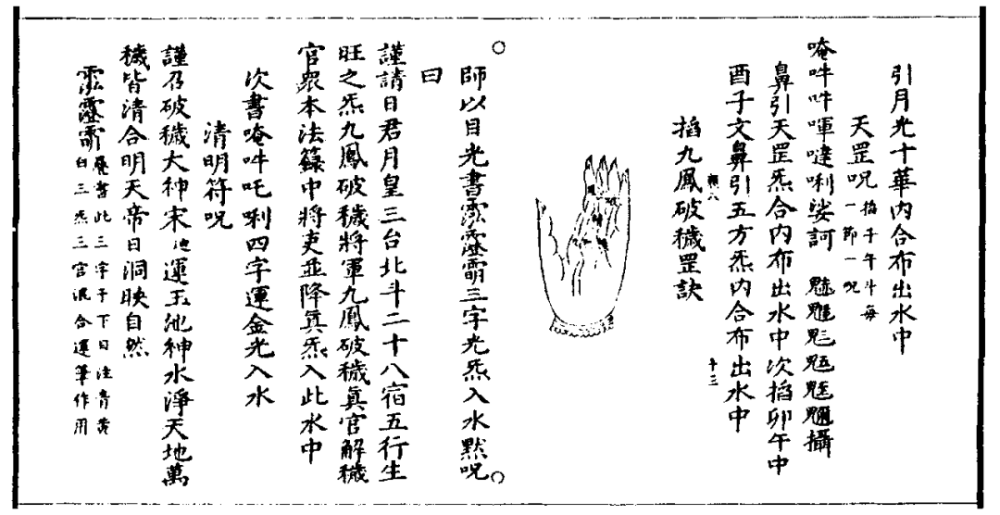 引月光十華內合布出水中
天罡呪 掐子午斗每一節一呪
唵吽吽㖶噠唎娑訶 攝
鼻引天罡炁合內布出水中次掐卯午中
酉子文鼻引五方炁內合布出水中
八 十三
掐九鳳破穢罡訣
師以目光書三字光炁入水默呪
曰
謹請日君月皇三台北斗二十八宿五行生
旺之炁九鳳破穢將軍九鳳破穢眞官解穢
官衆本法籙中將吏並降眞炁入此水中
次書唵吽吒唎四字運金光入水
清明符呪
謹召破穢大神宋運玉池神水淨天地萬
穢皆清合明天帝日洞映自然
書此三字于下日注青黃白三炁三官混合運筆作用